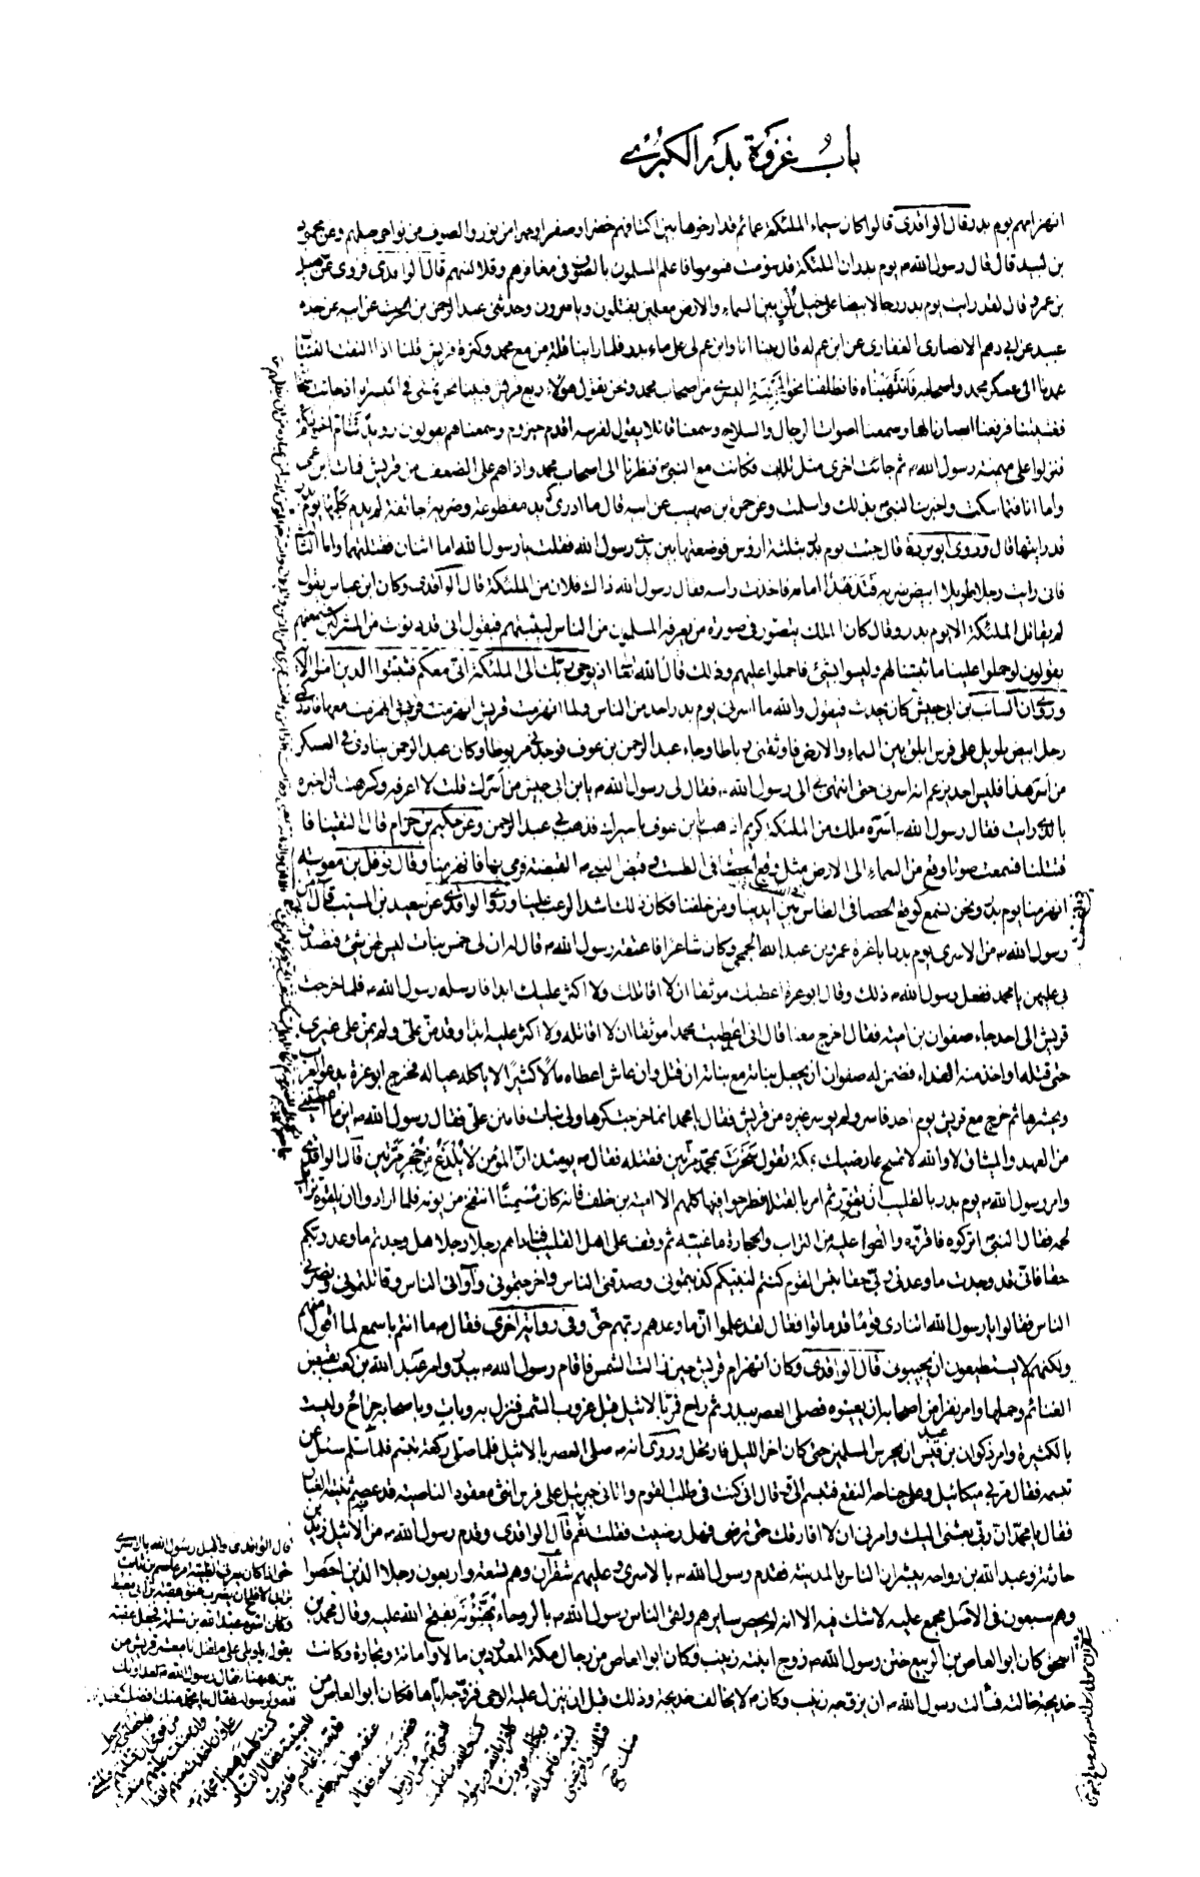 باب غزوة بدر الكبرى
انهزامهم يوم بدر قال الواقدى قالوا كان سيماء الملئكة عمائم قد ارخوها بين اكتافهم خضرا وصفرا وحمرا من نور والصوف من نواصى خيلهم وعن محمود
بن لبيد قال قال رسول الله ص يوم بدر ان الملئكة قد سومت فسوموا فاعلم المسلمون بالصوف فى مغافرهم وقلانسهم قال الواقدى فروى عن سهيل
بن عمرو قال لقد رايت يوم بدر رجالا بيضا على خيل بلق بين السماء والارض معلمين يقتلون وياسرون وحدثنى عبد الرحمن بن الحرث عن ابيه عن جده
عبيد عن ابى رهم الانصارى الغفارى عن ابن عم له قال بينا انا وابن عم لى على ماء بدر فلما راينا قلة من مع محمد وكثرة قريش قلنا اذا التقت الفئتان
عمدنا الى عسكر محمد واصحابه فانتهبناه فانطلقنا نحو المجنبة اليسرى من اصحاب محمد ونحن نقول هؤلاء ربع قريش فبينا نحن نمشى فى الميسرة اذ جاءت سحابة
فغشيتنا فرفعنا ابصارنا لها وسمعنا اصوات الرجال والسلاح وسمعنا قائلا يقول لفرسه اقدم حيزوم وسمعناهم يقولون رويدا تتام اخراكم
فنزلوا على ميمنة رسول الله ص ثم جائت اخرى مثل تلك فكانت مع النبى ص فنظرنا الى اصحاب محمد واذا هم على الضعف من قريش فمات ابن عمى
واما انا فتماسكت واخبرت النبى ص بذلك واسلمت وعن حمزة بن صهيب عن ابيه قال ما ادرى كم يد مقطوعة وضربة جائفة لم يدم كلمها يوم بدر
قد رايتها قال وروى ابو بردة قال جئت يوم بدر بثلثة ارؤس فوضعتها بين يدى رسول الله فقلت يا رسول الله اما اثنان فقتلتهما واما الثالث
فانى رايت رجلا طويلا ابيض ضربه فتدهدا امامه فاخذت راسه فقال رسول الله ذاك فلان من الملئكة قال الواقدى وكان ابن عباس يقول
لم يقاتل الملئكة الا يوم بدر وقال كان الملك يتصور فى صورة من يعرفه المسلمون من الناس ليثبتهم فيقول انى قد دنوت من المشركين فسمعتهم
يقولون لو حملوا علينا ما ثبتنا لهم وليسوا بشئ فاحملوا عليهم وذلك قال الله تعا اذ يوحى ربك الى الملئكة انى معكم فثبتوا الذين امنوا الآية
وروى ان السائب بن ابى حبيش كان يحدث فيقول والله ما اسرنى يوم بدر احد من الناس ولما انهزمت قريش انهزمت معها فادركنى
رجل ابيض طويل على فرس ابلق بين السماء والارض فاوثقنى رباطا وجاء عبد الرحمن بن عوف فوجدنى مربوطا وكان عبد الرحمن ينادى فى العسكر
من اسر هذا فليس احد يزعم انه اسرنى حتى انتهى بى الى رسول الله ص فقال لى رسول الله ص يابن ابى حبيش من اسرك قلت لا اعرفه وكرهت ان اخبره
بالذى رايت فقال رسول الله ص اسره ملك من الملئكة كريم اذهب يابن عوف باسيرك فذهب بى عبد الرحمن وعن حكيم بن حزام قال التقينا فا
قتتلنا فسمعت صوتا وقع من السماء الى الارض مثل وقع الحصا فى الطست وقبض النبى ص القبضة ورمى بها فانهزمنا وقال نوفل بن معوية
انهزمنا يوم بدر ونحن نسمع كوقع الحصا فى الطاس بين ايدينا ومن خلفنا فكان ذلك اشد الرعب علينا وروى الواقدى عن سعيد بن المسيب قال امن
رسول الله ص من الاسرى يوم بدر ابا عزة عمرو بن عبد الله الجمحى وكان شاعرا فاعتقه رسول الله ص قال له ان لى خمس بنات ليس لهن شئ فتصدق
بى عليهن يا محمد ففعل رسول الله ص ذلك وقال ابو عزة اعطيك موثقا ان لا اقاتلك ولا اكثر عليك ابدا فارسله رسول الله ص فلما خرجت
قريش الى احد جاء صفوان بن امية فقال اخرج معنا قال انى اعطيت محمدا موثقا ان لا اقاتله ولا اكثر عليه ابدا وقد من على ولم يمن على غيرى
حتى قتله او اخذ منه الفداء فضمن له صفوان ان يجعل بناته مع بناته ان قتل وان عاش اعطاه مالا كثيرا لا ياكله عياله فخرج ابو عزة يدعو العرب
ويحشرها ثم خرج مع قريش يوم احد فاسر ولم يوسر غيره من قريش فقال يا محمد انما خرجت كرها ولى بنات فامنن على فقال رسول الله ص اين ما اعطيتنى
من العهد والميثاق لا والله لا تمسح عارضيك بمكة تقول سخرت بمحمد مرتين فقتله فقال ص يومئذ ان المؤمن لا يلدغ من جحر مرتين قال الواقدى
وامر رسول الله ص يوم بدر بالقليب ان تغور ثم امر بالقتلى فطرحوا فيها كلهم الا امية بن خلف فانه كان مسمنا انتفخ من يومه فلما ارادوا ان يلقوه تزايل
لحمه فقال النبى اتركوه فاقروه والقوا عليه من التراب والحجارة ما غيبه ثم وقف على اهل القليب فناداهم رجلا رجلا هل وجدتم ما وعد ربكم
حقا فانى قد وجدت ما وعدنى ربى حقا بئس القوم كنتم لنبيكم كذبتمونى وصدقنى الناس واخرجتمونى وآوانى الناس وقاتلتمونى ونصرنى
الناس فقالوا يا رسول الله اتنادى قوما قد ماتوا فقال لقد علموا ان ما وعدهم ربهم حق وفى رواية اخرى فقال ص ما انتم باسمع لما اقول منهم
ولكنهم لا يستطيعون ان يجيبونى قال الواقدى وكان انهزام قريش حين زالت الشمس فاقام رسول الله ص ببدر وامر عبد الله بن كعب بقبض
الغنائم وحملها وامر نفرا من اصحابه ان يعينوه فصلى العصر ببدر ثم راح فمر بالاثيل قبل غروب الشمس فنزل به وبات وباصحابه جراح وليست
بالكثيرة وامر ذكوان بن عبد قيس ان يحرس المسلمين حتى كان اخر الليل فارتحل وروى انه ص صلى العصر بالاثيل فلما صلى ركعة تبسم فلما سلم سئل عن
تبسمه فقال مر بى ميكائيل وعلى جناحه النقع فتبسم الى وقال انى كنت فى طلب القوم واتانى جبرئيل على فرس انثى معقود الناصية قد عصم ثنيته الغبار
فقال يا محمد ان ربى بعثنى اليك وامرنى ان لا افارقك حتى ترضى فهل رضيت فقلت نعم قال الواقدى وقدم رسول الله ص من الاثيل زيد بن
حارثة وعبد الله بن رواحة يبشران الناس بالمدينة فقدم رسول الله ص بالاسرى وعليهم شقران وهم تسعة واربعون رجلا الذين احصوا
وهم سبعون فى الاصل مجمع عليه لا شك فيه الا انه لم يحص سايرهم ولقى الناس رسول الله ص بالروحاء يهنؤنه بفتح الله عليه وقال محمد بن
اسحق كان ابو العاص بن الربيع ختن رسول الله ص زوج ابنته زينب وكان ابو العاص من رجال مكة المعدودين مالا وامانة وتجارة وكانت
خديجة خالته فسالت رسول الله ص ان يزوجه زينب وكان ص لا يخالف خديجة وذلك قبل ان ينزل عليه الوحى فزوجه اياها فكان ابو العاص من
قال الواقدى واقبل رسول الله بالاسرى
حتى اذا كان بعرق الظبية امر عاصم بن ثابت
بن ابى الاقلح ان يضرب عنق عقبة بن ابى معيط
وكان اسره عبد الله بن سلمة فجعل عقبة
يقول يا ويلى علام اقتل يا معشر قريش من
بين من ههنا فقال رسول الله ص لعداوتك
لله ولرسوله فقال يا محمد منك افضل